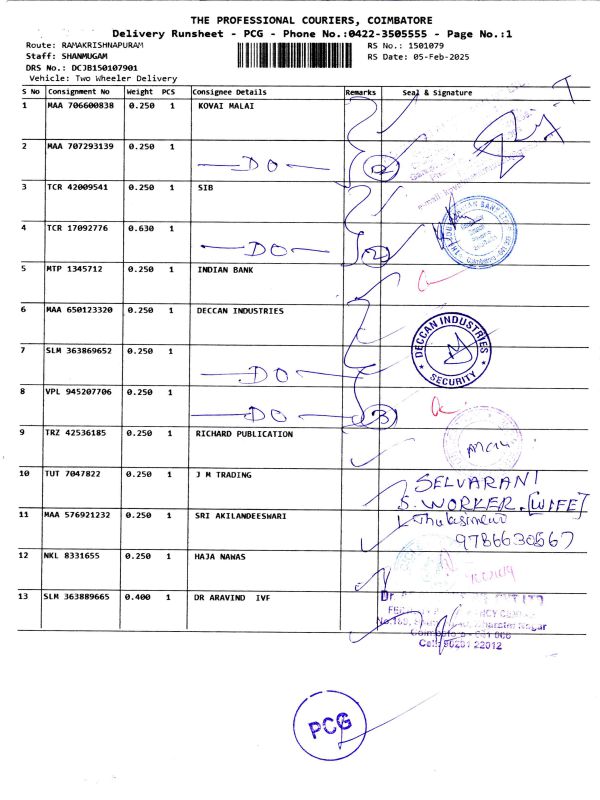 THE PROFESSIONAL COURIERS, COIMBATORE
Delivery Runsheet - PCG - Phone No.:0422-3505555 - Page No.:1
Route: RAMAKRISHNAPURAM RS No.: 1501079
Staff: SHANMUGAM RS Date: 05-Feb-2025
DRS No.: DCJB150107901
Vehicle: Two Wheeler Delivery
S No Consignment No Weight PCS Consignee Details Remarks Seal & Signature
1 MAA 706600838 0.250 1 KOVAI MALAI
2 MAA 707293139 0.250 1 DO 2
3 TCR 42009541 0.250 1 SIB
4 TCR 17092776 0.630 1 DO 2
5 MTP 1345712 0.250 1 INDIAN BANK
6 MAA 650123320 0.250 1 DECCAN INDUSTRIES
DECCAN INDUSTRIES
SECURITY
7 SLM 363869652 0.250 1 DO
8 VPL 945207706 0.250 1 DO 3
9 TRZ 42536185 0.250 1 RICHARD PUBLICATION
10 TUT 7047822 0.250 1 J M TRADING SELVARANI
S. WORKER. [WIFE]
11 MAA 576921232 0.250 1 SRI AKILANDEESWARI
9786630567
12 NKL 8331655 0.250 1 HAJA NAWAS
13 SLM 363889665 0.400 1 DR ARAVIND IVF Dr
Coimbatore
Cell: 90201 22012
PCG